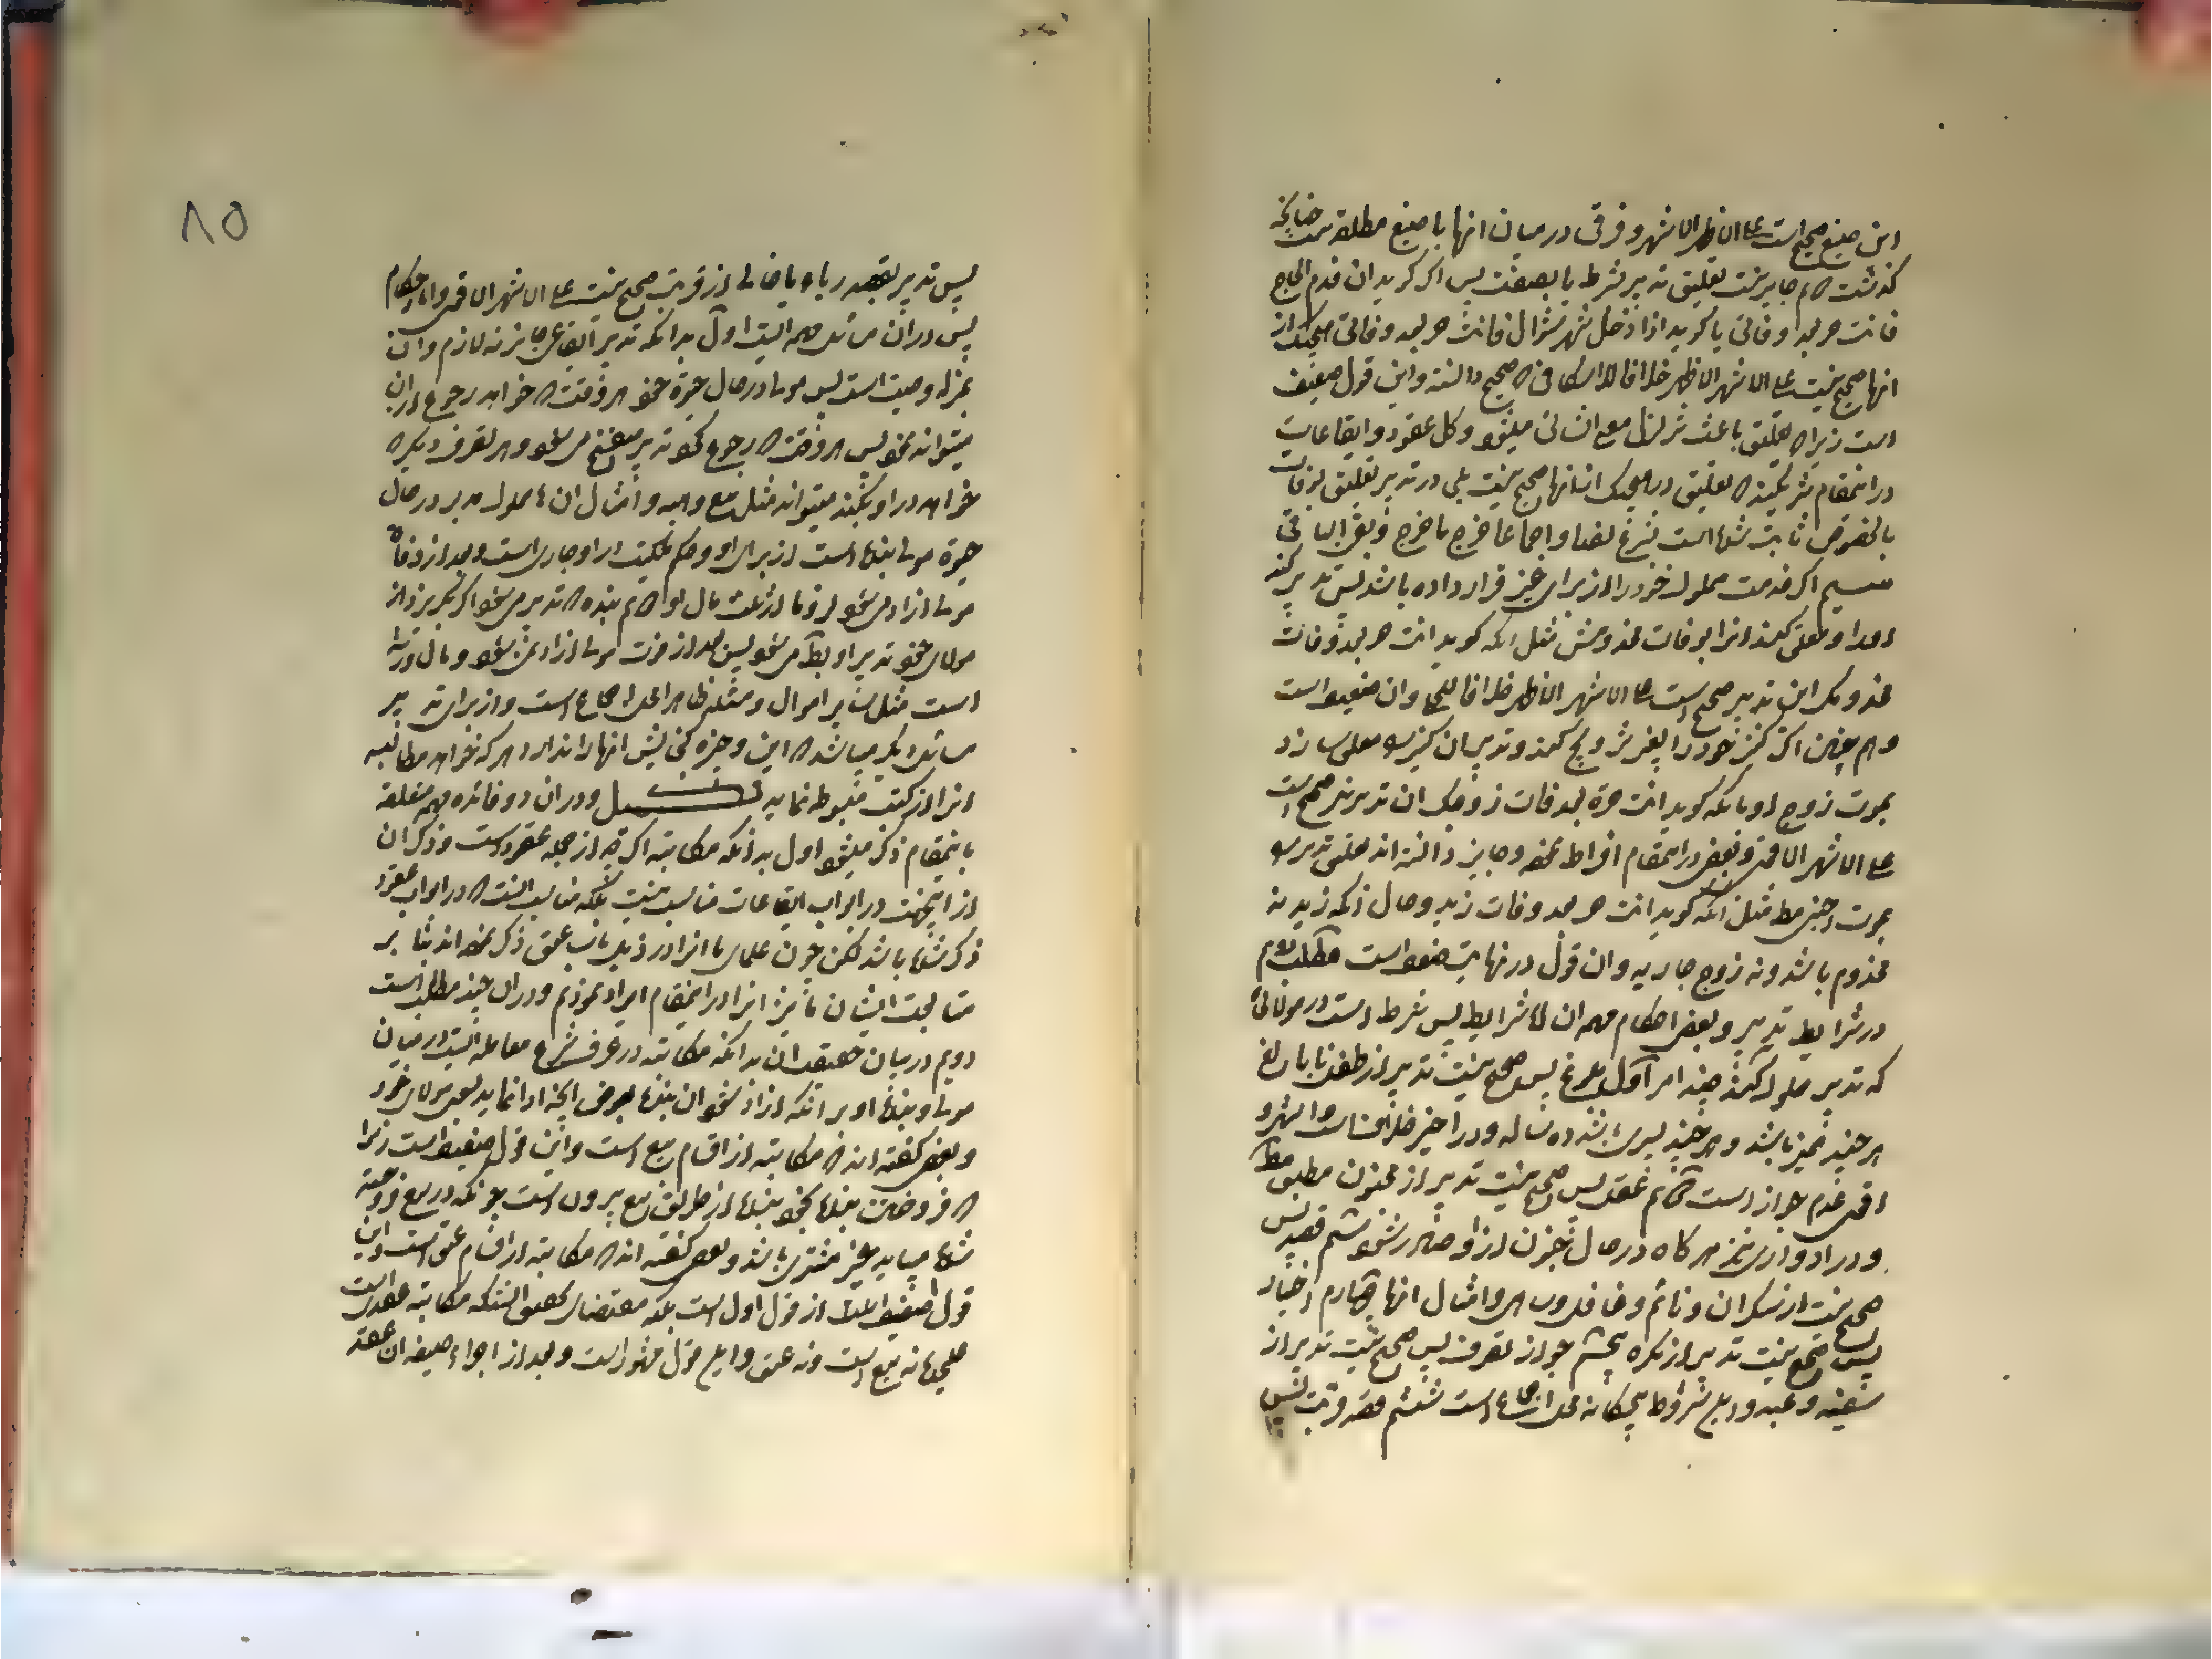 این صیغ صحیح است علی الاظهر الاشهر و فرقی در میان انها با صیغ مطلقه نیست چنانچه
کذشت دویم جایز نیست تعلیق تدبیر بشرط یا بصفت پس اکر کوید ان قدم الحاج
فانت حر بعد وفاتی یا کوید اذا دخل شهر شوال فانت حر بعد وفاتی هیچیک از
انها صحیح نیست علی الاشهر الاظهر خلافا للاسکافی که صحیح دانسته و این قول ضعیف
است زیرا که تعلیق باعث تزلزل مع انشائی میشود و کل عقود و ایقاعات
در اینمقام شریکند که تعلیق در هیچیک از انها صحیح نیست بلی در تدبیر تعلیق بوفات
بالخصوص ثابت شده است شرع نصا و اجماعا خرج ما خرج و بقی الباقی
سیم اکر خدمت مملوک خود را از برای غیر قرار داده باشد پس تدبیر کند
او را و معلق کند انرا بوفات مخدومش مثل انکه کوید انت حر بعد وفات
مخدومک این تدبیر صحیح است علی الاشهر الاظهر خلافا للحلی و ان ضعیف است
و هم چنین اکر کنیز خود را بغیر تزویج کند و تدبیر ان کنیز را معلق سازد
بموت زوج او بانکه کوید انت حرة بعد وفات زوجک ان تدبیر نیز صحیح است
علی الاشهر الاقوی و بعضی در اینمقام افراط نموده و جایز دانسته اند تعلیق تدبیر را
بموت اجنبی مط مثل انکه کوید انت حر بعد وفات زید و حال انکه زید نه
مخدوم باشد و نه زوج جاریه و ان قول در نهایت ضعف است مطلب دویم
در شرایط تدبیر و بعض احکام مهمه ان اما شرایط پس شرط است در مولائی
که تدبیر مملوک کند چند امر اول بلوغ پس صحیح نیست تدبیر از طفل نابالغ
هر چند ممیز باشد و هر چند پسری باشد ده ساله و در اخیر خلاف است و اشهر و
اقوی عدم جواز است دویم عقل پس صحیح نیست تدبیر از مجنون مطبق مط
و در ادواری نیز هر کاه در حال جنون از او صادر شود سیم قصد پس
صحیح نیست از سکران و نائم و غافل و ساهی و امثال انها چهارم اختیار
پس صحیح نیست تدبیر از مکره پنجم جواز تصرف پس صحیح نیست تدبیر از
سفیه و عبد و این شروط پنجکانه محل اجماع است ششم قصد قربت پس
۸۵
پس تدبیر بقصد ریاء یا خالی از قربت صحیح نیست علی الاشهر الاقوی و اما احکام
پس در ان مسائل مهمه ایست اول بدانکه تدبیر ایقاعی جایز نه لازم و ان
بمنزله وصیت است پس مولی در حال حیوة خود هر وقت که خواهد رجوع در ان
میتواند نمود پس هر وقت که رجوع نمود تدبیر منفسخ می شود و هر تصرف دیکر که
خواهد در او بکند میتواند مثل بیع و هبه و امثال ان دویم مملوک مدبر در حال
حیوة مولی بنده است از برای او و حکم ملکیت در او جاری است و بعد از وفات
مولی ازاد می شود لزوما از ثلث مال او سیم بنده که تدبیر می شود اکر بکریزد از
مولای خود تدبیر او باطل می شود پس بعد از فوت مولی ازاد نمی شود و مال ورثه
است مثل سایر اموال و مسئله ظاهرا محل اجماع است و از برای تدبیر
مسائل دیکر میباشد که این وجیزه کنجایش انها را ندارد هر که خواهد مطالبه
انرا از کتب مبسوطه نماید تذییل و در ان دو فائده مهمه متعلقه
باینمقام ذکر میشود اول بدانکه مکاتبه اکرچه از جمله عقود است و ذکر ان
از اینجهت در ابواب ایقاعات مناسب نیست بلکه مناسب انست که در ابواب عقود
ذکر شده باشد لکن چون علمای ما انرا در ذیل باب عتق ذکر نموده اند بنا بر
متابعت ایشان ما نیز انرا در اینمقام ایراد نمودیم و در ان چند مطلب است
دویم در بیان حقیقت ان بدانکه مکاتبه در عرف شرع معامله ایست در میان
مولی و بنده او بر انکه ازاد شود ان بنده بعوض انچه ادا نماید بسوی مولای خود
و بعضی کفته اند که مکاتبه از اقسام بیع است و این قول ضعیف است زیرا
که فروختن بنده بخود بنده از طریق بیع بیرون است چونکه در بیع فروخته
شده میباید غیر مشتری باشد و بعضی کفته اند که مکاتبه از اقسام عتق است و این
قول از قول اول است بلکه مقتضای تحقیق انستکه مکاتبه عقدیست
علیحده نه بیع است و نه عتق و این قول مشهور است و بعد از اجراء صیغه ان عقد